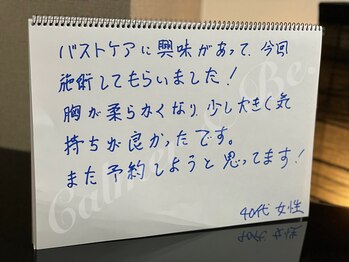 バストケアに興味があって、今回
施術してもらいました!
胸が柔らかくなり少し大きく気
持ちが良かったです。
また予約しようと思ってます!
40代 女性